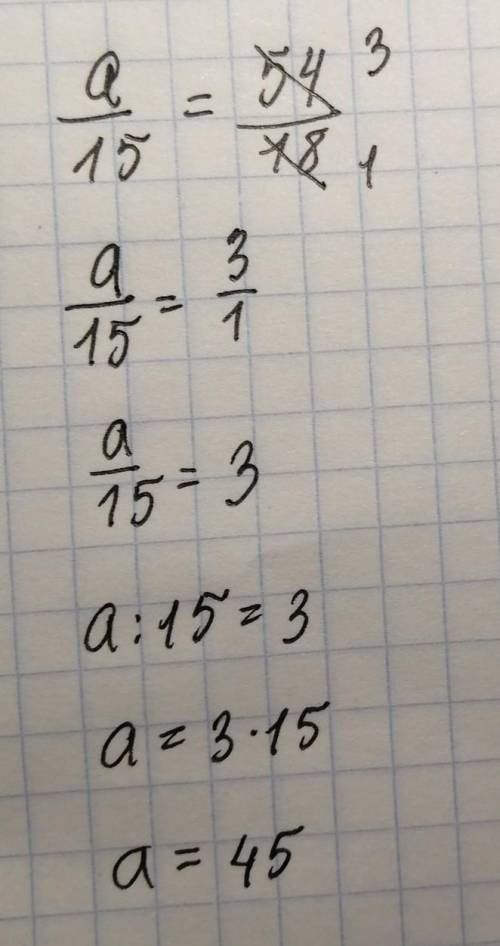 a/15 = 54/18 3 1
a/15 = 3/1
a/15 = 3
a:15 = 3
a = 3·15
a = 45